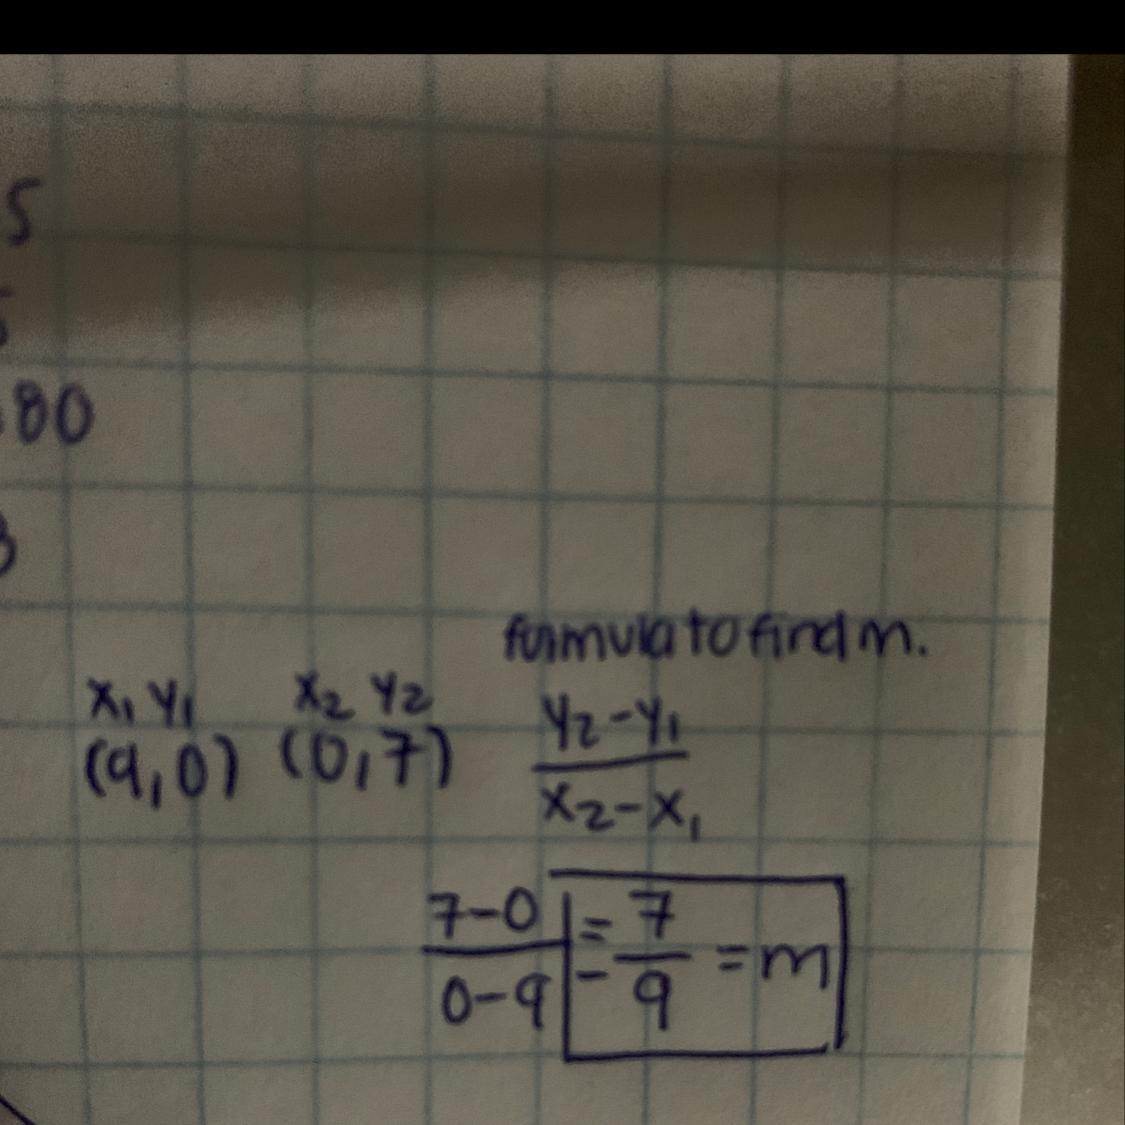 5
80
formula to find m.
x₁ y₁ x₂ y₂
(9,0) (0,7)
y₂-y₁
x₂-x₁
7-0 = 7
0-9 - 9 = m